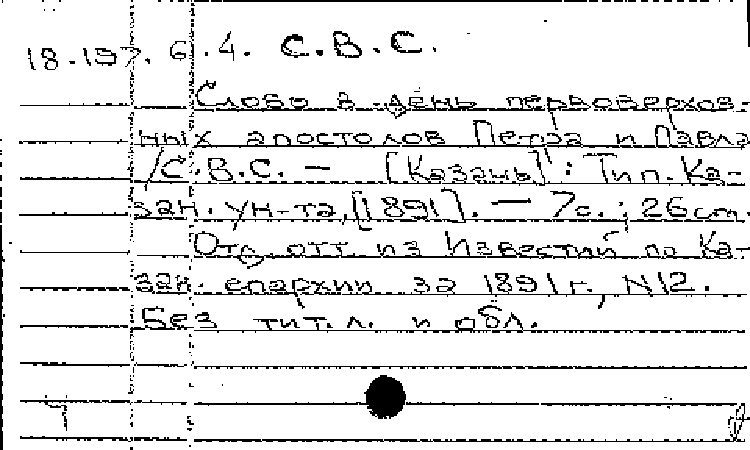 18.197.6.4. С.В.С.
Слово в день первоверхов-
ных апостолов Петра и Павла
/С.В.С. — [Казань]: Тип. Ка-
зан. ун-та, [1891]. — 7с.; 26 cm.
Отд. отт. из Известий по Ка-
зан. епархии за 1891 г., N12.
Без тит. л. и обл.